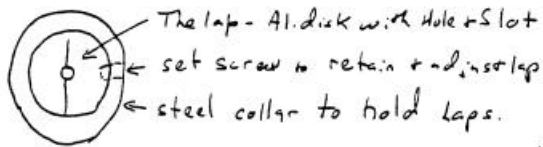 The lap - Al. disk with Hole + Slot
set screw to retain + adjust lap
steel collar to hold Laps.